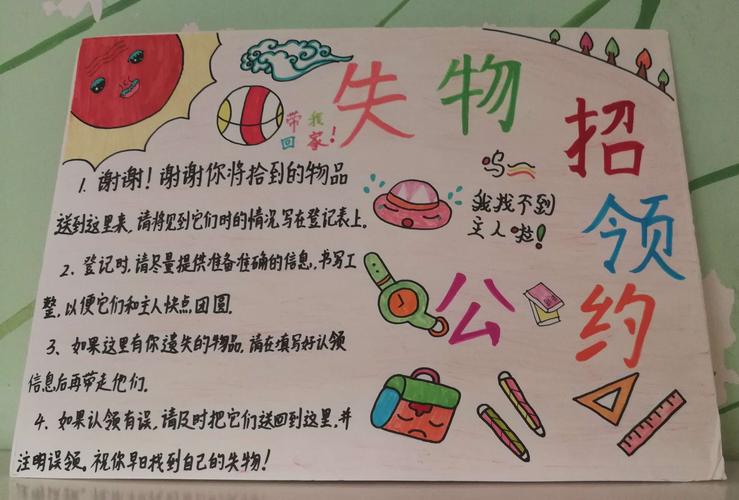 失物
招领
公约
带我
回家!
呜~
我找不到
主人啦!
1. 谢谢!谢谢你将拾到的物品
送到这里来,请将见到它们时的情况写在登记表上。
2、登记时,请尽量提供准备准确的信息,书写工
整,以便它们和主人快点团圆.
3、如果这里有你遗失的物品,请在填写好认领
信息后再带走他们.
4、如果认领有误,请及时把它们送回到这里,并
注明误领。祝你早日找到自己的失物!